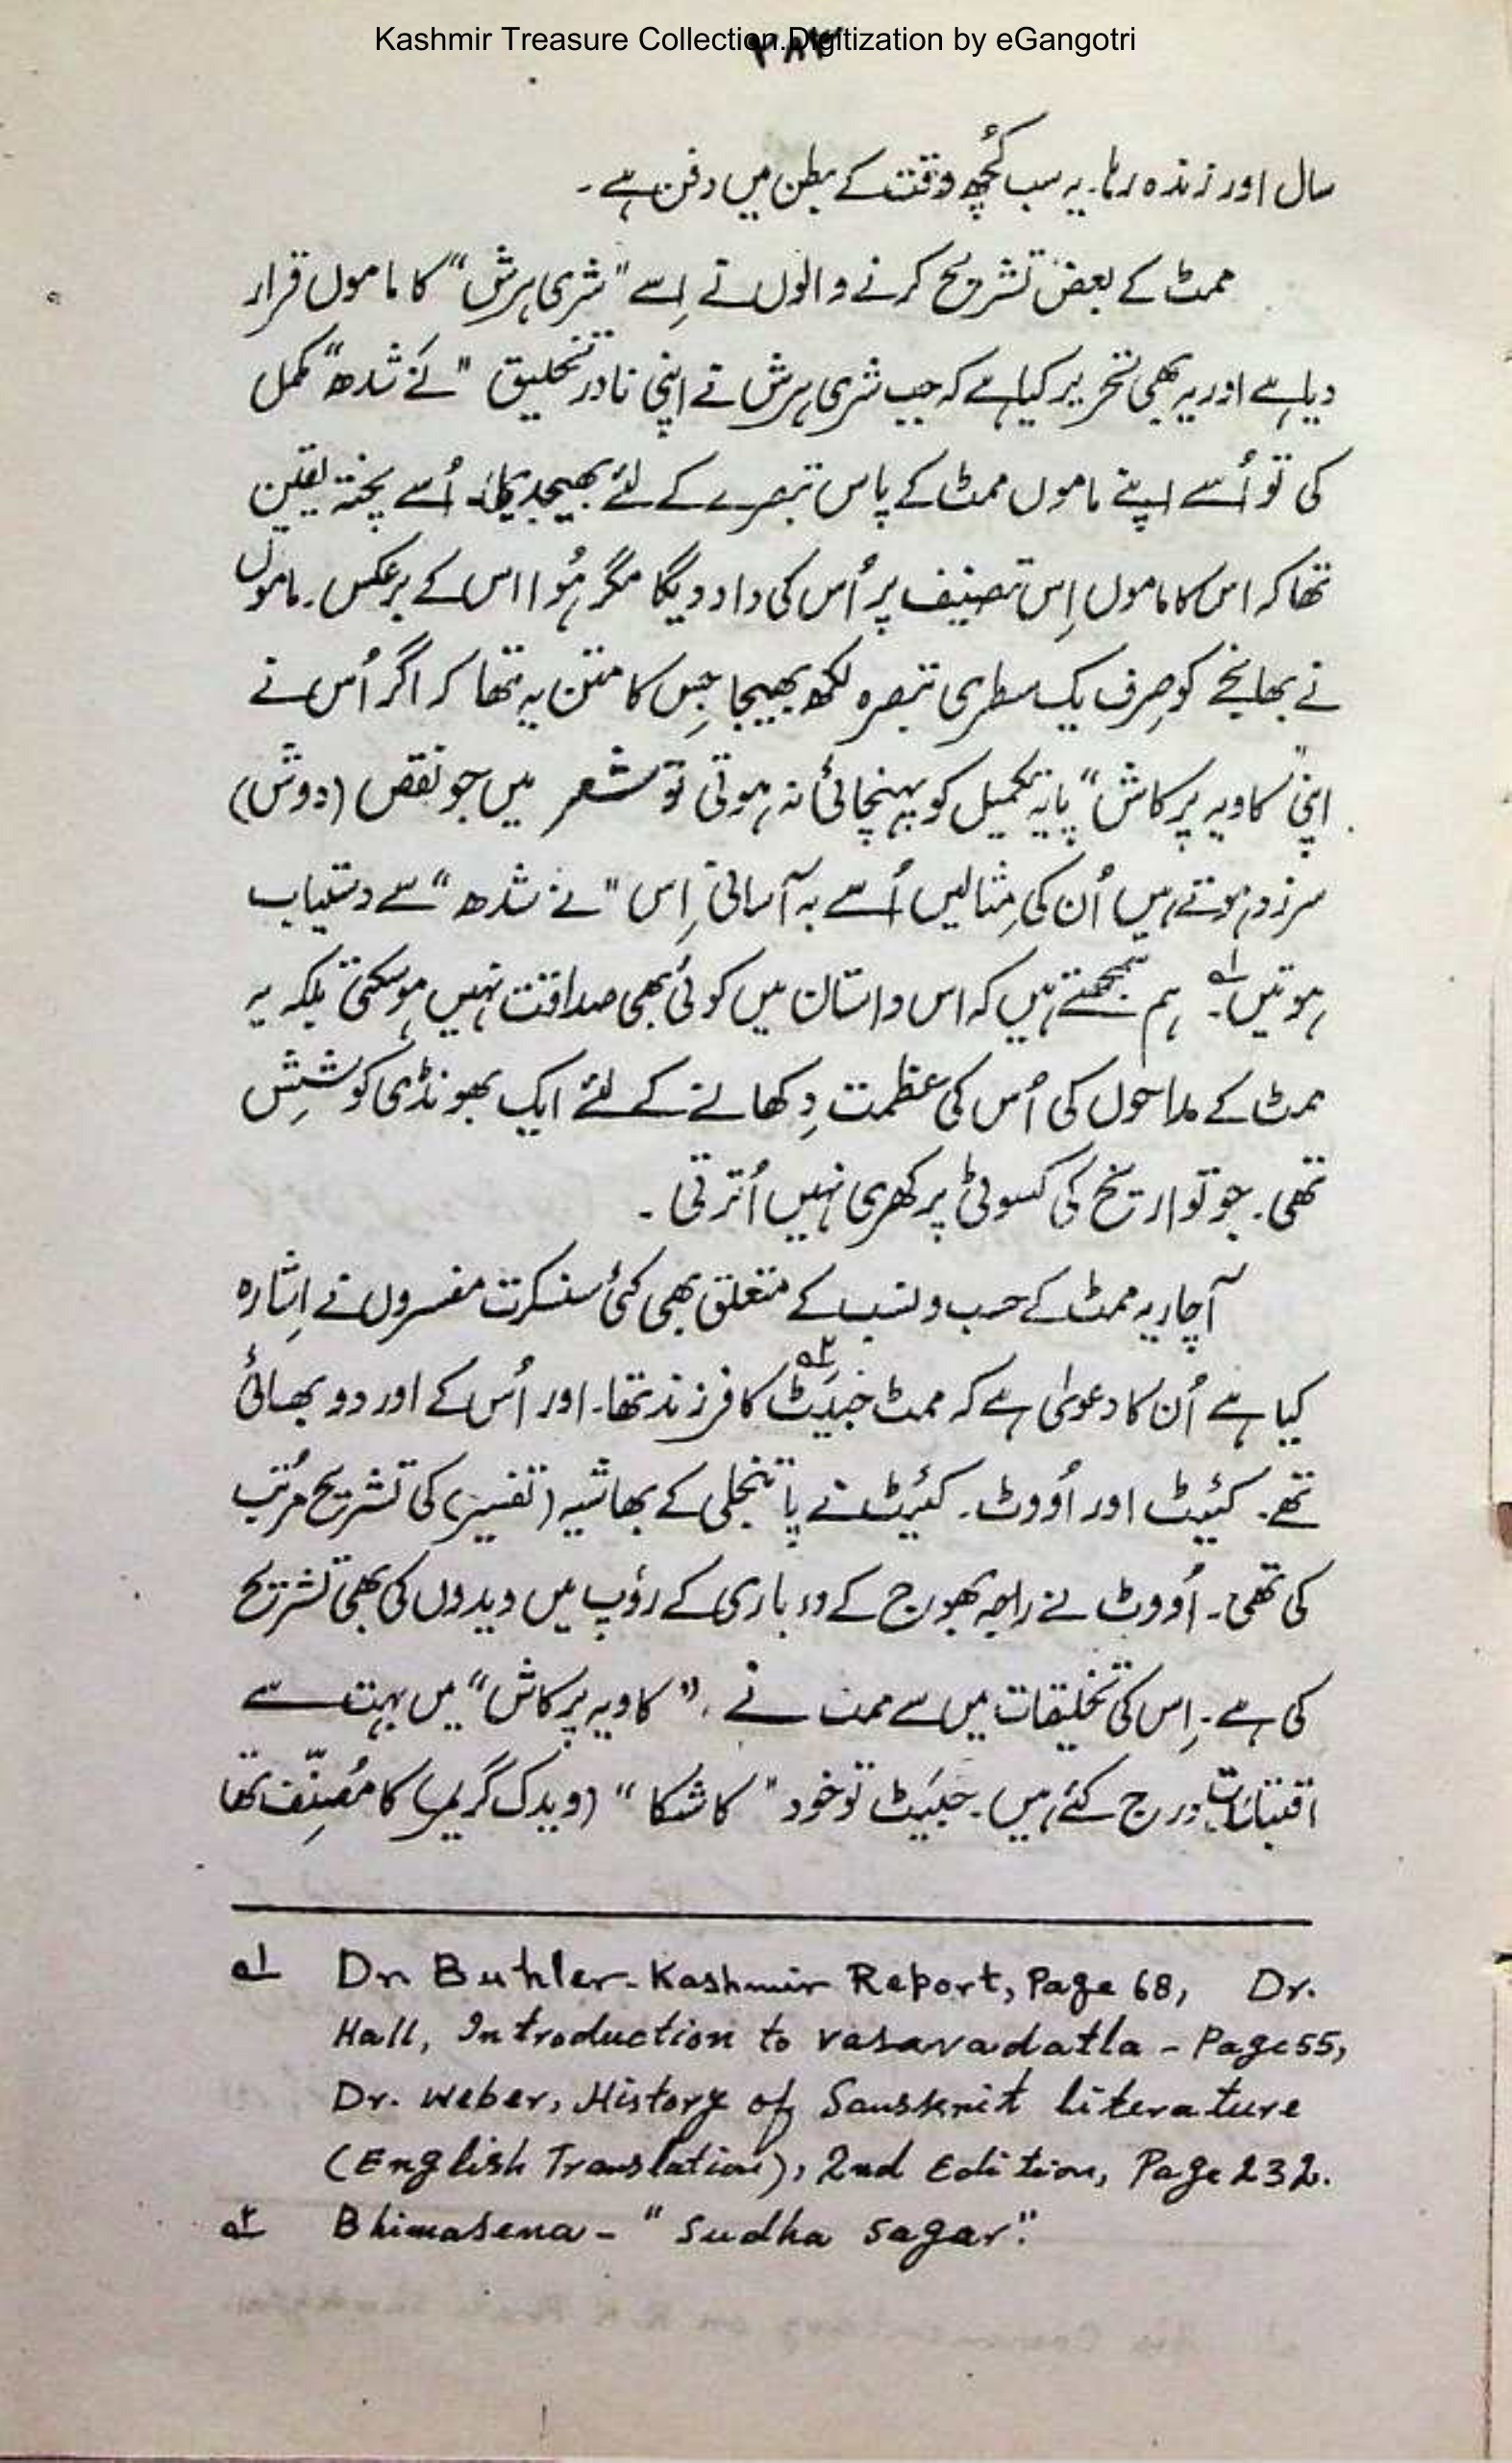 Kashmir Treasure Collection.Digitization by eGangotri
سال اور زندہ رہا۔ یہ سب کُچھ وقت کے بطن میں دفن ہے۔
ممٹ کے بعض تشریح کرنے والوں نے اِسے "شری ہرش" کا ماموں قرار
دیا ہے اور یہ بھی تحریر کیا ہے کہ جب شری ہرش نے اپنی نادر تخلیق "نے شدھ" مکمل
کی تو اُسے اپنے ماموں ممٹ کے پاس تبصرے کے لئے بھیجدیا۔ اُسے پختہ یقین
تھا کہ اس کا ماموں اِس تصنیف پر اُس کی داد دیگا مگر ہُوا اس کے برعکس۔ ماموں
نے بھانجے کو صِرف یک سطری تبصرہ لکھ بھیجا جِس کا متن یہ تھا کہ اگر اُس نے
اپنی "کاویہ پرکاش" پایہ تکمیل کو پہنچائی نہ ہوتی تو شعر میں جو نقص (دوش)
سرزد ہوتے ہیں اُن کی مِثالیں اُسے بہ آسانی اِس "نے شدھ" سے دستیاب
ہوتیں۔ ۱؎ ہم سمجھتے ہیں کہ اس داستان میں کوئی بھی صداقت نہیں ہوسکتی بلکہ یہ
ممٹ کے مداحوں کی اُس کی عظمت دِکھانے کے لئے ایک بھونڈی کوشِش
تھی۔ جو تواریخ کی کسوٹی پر کھری نہیں اُترتی۔
آچاریہ ممٹ کے حسب و نسب کے متعلق بھی کئی سنسکرت مفسروں نے اِشارہ
کیا ہے اُن کا دعویٰ ہے کہ ممٹ جَیَٹ ۲؎ کا فرزند تھا۔ اور اُس کے اور دو بھائی
تھے۔ کئیٹ اور اُووٹ۔ کئیٹ نے پاتنجلی کے بھاشیہ (تفسیر) کی تشریح مُرتب
کی تھی۔ اُووٹ نے راجہ بھوج کے درباری کے رُوپ میں ویدوں کی بھی تشریح
کی ہے۔ اِس کی تخلیقات میں سے ممٹ نے "کاویہ پرکاش" میں بہت سے
اقتباسات درج کئے ہیں۔ جیَٹ تو خود "کاشکا" (ویدک گریمر) کا مُصنِّف تھا
۱؎ Dr. Buhler-Kashmir Report, Page 68, Dr.
Hall, Introduction to vasavadatla - Page 55,
Dr. Weber, History of Sansskrit literature
(English Translation), 2nd Edition, Page 232.
۲؎ Bhimasena - "Sudha sagar".